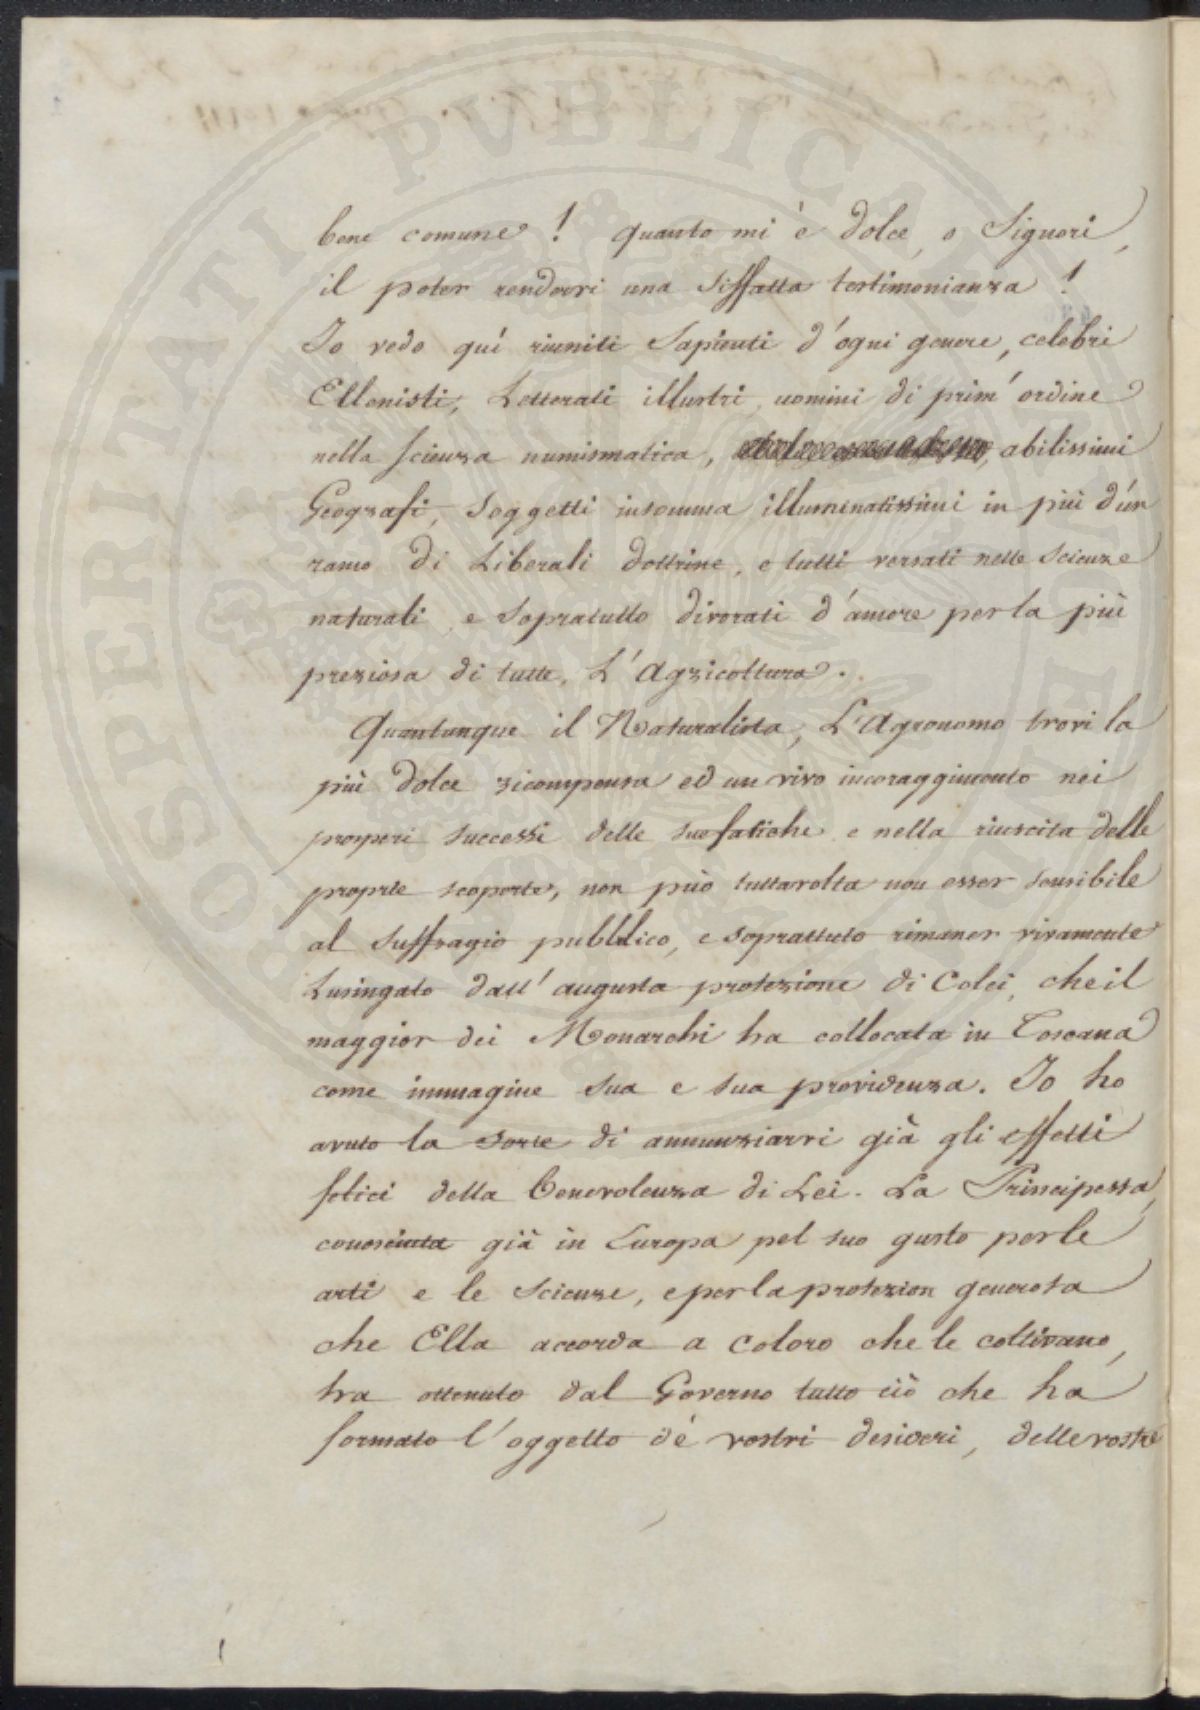 PROSPERITATI PVBLICAE AVGENDAE
bene comune! quanto mi è dolce, o Signori,
il poter rendervi una siffatta testimonianza!
Io vedo quì riuniti Sapienti d'ogni genere, celebri
Ellenisti, Letterati illustri, uomini di prim'ordine
nella scienza numismatica, abilissimi
Geografi, Soggetti insomma illuminatissimi in più d'un
ramo di Liberali dottrine, e tutti versati nelle Scienze
naturali, e Sopratutto divorati d'amore per la più
preziosa di tutte, L'Agricoltura.
Quantunque il Naturalista, L'Agronomo trovi la
più dolce ricompensa ed un vivo incoraggimento nei
prosperi successi delle sue fatiche, e nella riuscita delle
proprie scoperte, non può tuttavolta non esser sensibile
al suffragio pubblico, e soprattuto rimaner vivamente
Lusingato dall'augusta protezione di Colei, che il
maggior dei Monarchi ha collocata in Toscana
come immagine sua e sua providenza. Io ho
avuto la sorte di annunziarvi già gli effetti
felici della Benevolenza di Lei. La Principessa,
conosciuta già in Europa pel suo gusto per le
arti e le Scienze, e per la protezion generosa
che Ella accorda a coloro che le coltivano,
ha ottenuto dal Governo tutto ciò che ha
formato l'oggetto de' vostri desideri, delle vostre